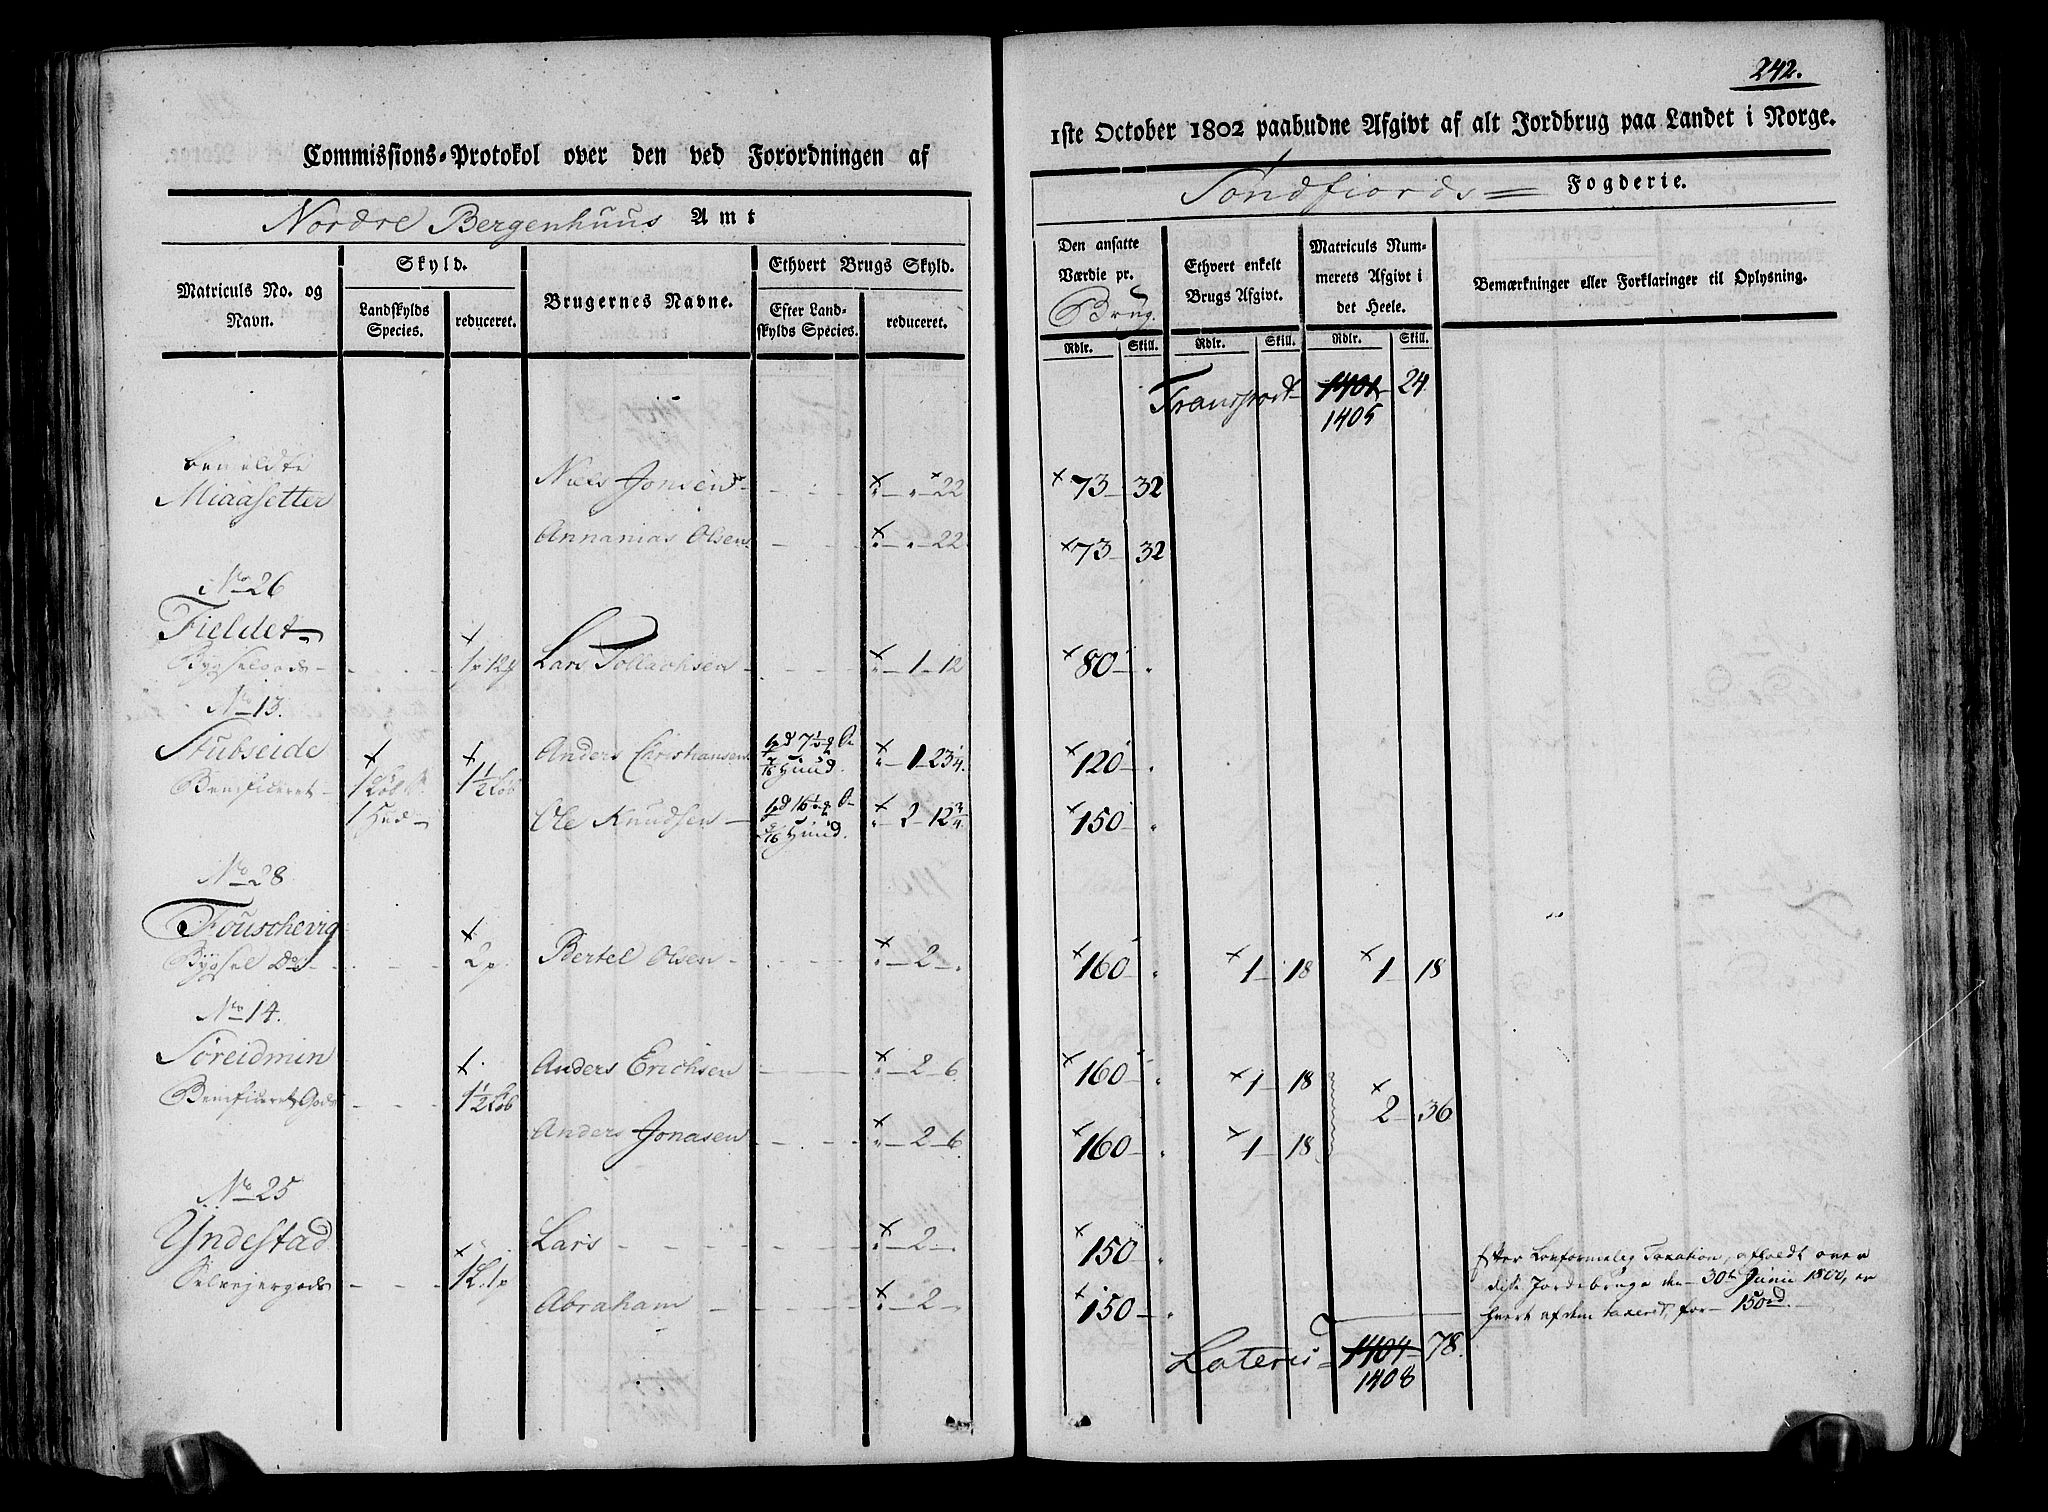 242.
Commissions-Protokol over den ved Forordningen af
1ste October 1802 paabudne Afgivt af alt Jordbrug paa Landet i Norge.
Nordre Bergenhuus Amt
Søndfiords Fogderie.
Matriculs No. og Navn.
Skyld.
Landskylds Species.
reduceret.
Brugernes Navne.
Ethvert Brugs Skyld.
Efter Landskylds Species.
reduceret.
Den ansatte Værdie pr. Brug.
Rdlr. Skill.
Ethvert enkelt Brugs Afgivt.
Rdlr. Skill.
Matriculs Nummerets Afgivt i det Heele.
Rdlr. Skill.
Bemærkninger eller Forklaringer til Oplysning.
Transport 1401 24
1405
bemeldte
Miaasetter Niels Jonsen 22 73 32
Annanias Olsen 22 73 32
No 26
Fieldet
Bygselgods Lars Tollachsen 1 12 80
No 13.
Stubseide Anders Christiansen 1 23 1/4 120
Benificeret
1 Hud Ole Knudsen 2 12 3/4 150
No 28
Fouschevig
Bygsel Do 2 p Bertel Olsen 2 160 1 18 1 18
No 14.
Søreidmin Anders Erichsen 2 6 160 1 18
Benificeret Gods 1 1/2 Løb 2 36
Anders Jonasen 2 6 160 1 18
No 25
Yndestad Lars 2 150
Selvejergods Abraham 2 150
Efter Lovformelig Taxation, afholdt over
disse Jordebruge den 30te Junii 1800, er
hvert af dem taxeret, for 150rd.
Lateris 1404 78.
1408